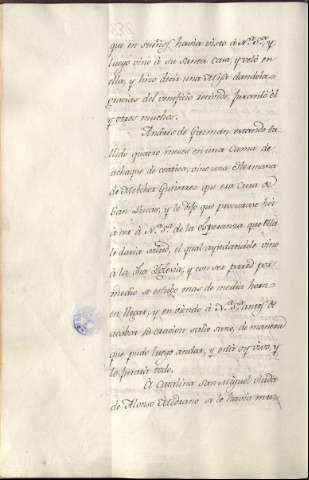 que en sueños havia visto á Nrª Srª, y
luego vino á su Santa Casa, y veló en
ella, y hizo decir una Misa dandola
gracias del veneficio recivido, jurando él
y otros muchos.
Andrés de Guzman estando ta-
llido quatro meses en una cama de
achaque de ceatica, vino una Hermana
de Melchor Gutierrez que era Cura de
San Lucas, y le dijo que procurase hir
á ver á Nª Sª de la Esperanza que Ella
le daria salud, el qual ayudandole vino
á la dha Yglesia, y con ser pared por
medio se estubo mas de media hora
en llegar, y en viendo á Nª Sª antes de
acabar su oracion salio sano, de manera
que pudo luego andar, y estár oy vivo, y
lo juraron todo.
A Catalina San Miguel viuda
de Alonso Medrano se le havia muer